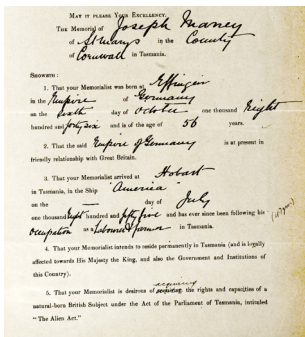 MAY IT PLEASE YOUR EXCELLENCY.
THE Memorial of Joseph Maney
of St Marys in the County
of Cornwall in Tasmania.
SHOWETH:
1. That your Memorialist was born at Effingin
in the Empire of Germany
on the Sixth day of October one thousand Eight
hundred and forty six and is of the age of 56 years.
2. That the said Empire of Germany is at present in
friendly relationship with Great Britain.
3. That your Memorialist arrived at Hobart
in Tasmania, in the Ship "America"
on the — day of July
one thousand Eight hundred and fifty five and has ever since been following his
occupation as a Labourer & Farmer in Tasmania. (47 years)
4. That your Memorialist intends to reside permanently in Tasmania (and is legally
affected towards His Majesty the King, and also the Government and Institutions of
this Country).
acquiring
5. That your Memorialist is desirous of the rights and capacities of a
natural-born British Subject under the Act of the Parliament of Tasmania, intituled
"The Alien Act."